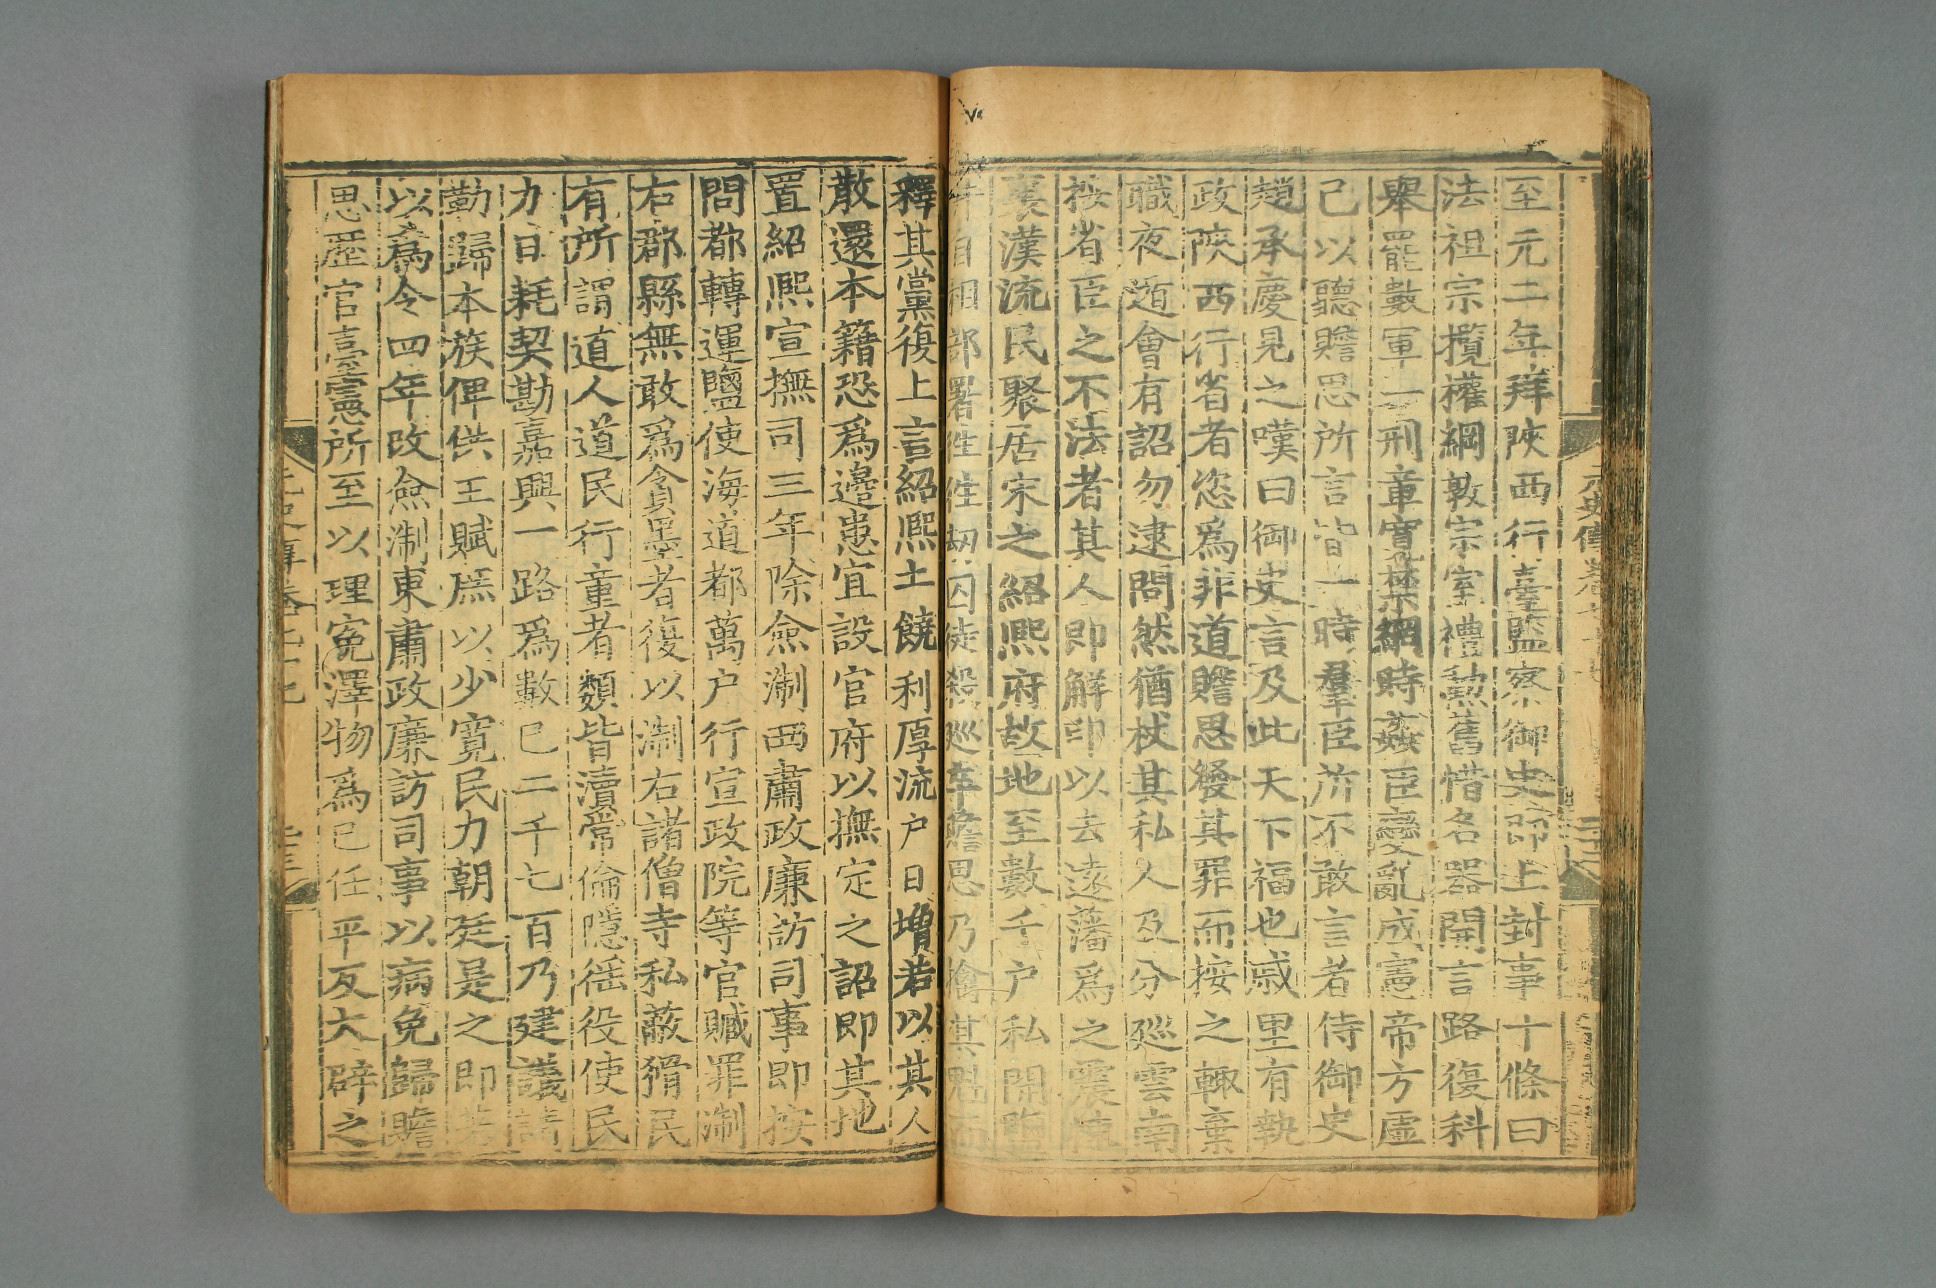 至元二年拜陝西行臺監察御史即上封事十條曰
法祖宗攬權綱敦宗室禮勳舊惜名器開言路復科
舉罷數軍一刑章寬禁網時姦臣變亂成憲帝方虛
己以聽贍思所言皆一時羣臣所不敢言者侍御史
趙承慶見之嘆曰御史言及此天下福也戚里有執
政陝西行省者恣爲非道贍思發其罪而按之輙棄
職夜遁會有詔勿逮問然猶杖其私人及分廵雲南
按省臣之不法者其人即解印以去遠藩爲之震慄
襄漢流民聚居宋之紹熙府故地至數千户私開鹽
井自相部署往往刼囚徒殺廵卒贍思乃擒其魁而
釋其黨復上言紹熙土饒利厚流户日增若以其人
散還本籍恐爲邊患宜設官府以撫定之詔即其地
置紹熙宣撫司三年除僉浙西肅政廉訪司事即按
問都轉運鹽使海道都萬户行宣政院等官贓罪浙
右郡縣無敢爲貪墨者復以浙右諸僧寺私蔽猾民
有所謂道人道民行童者類皆瀆常倫隱徭役使民
力日耗契勘嘉興一路爲數已二千七百乃建議請
勒歸本族俾供王賦庶以少寬民力朝廷是之即著
以爲令四年改僉浙東肅政廉訪司事以病免歸贍
思歷官臺憲所至以理寃澤物爲己任平反大辟之